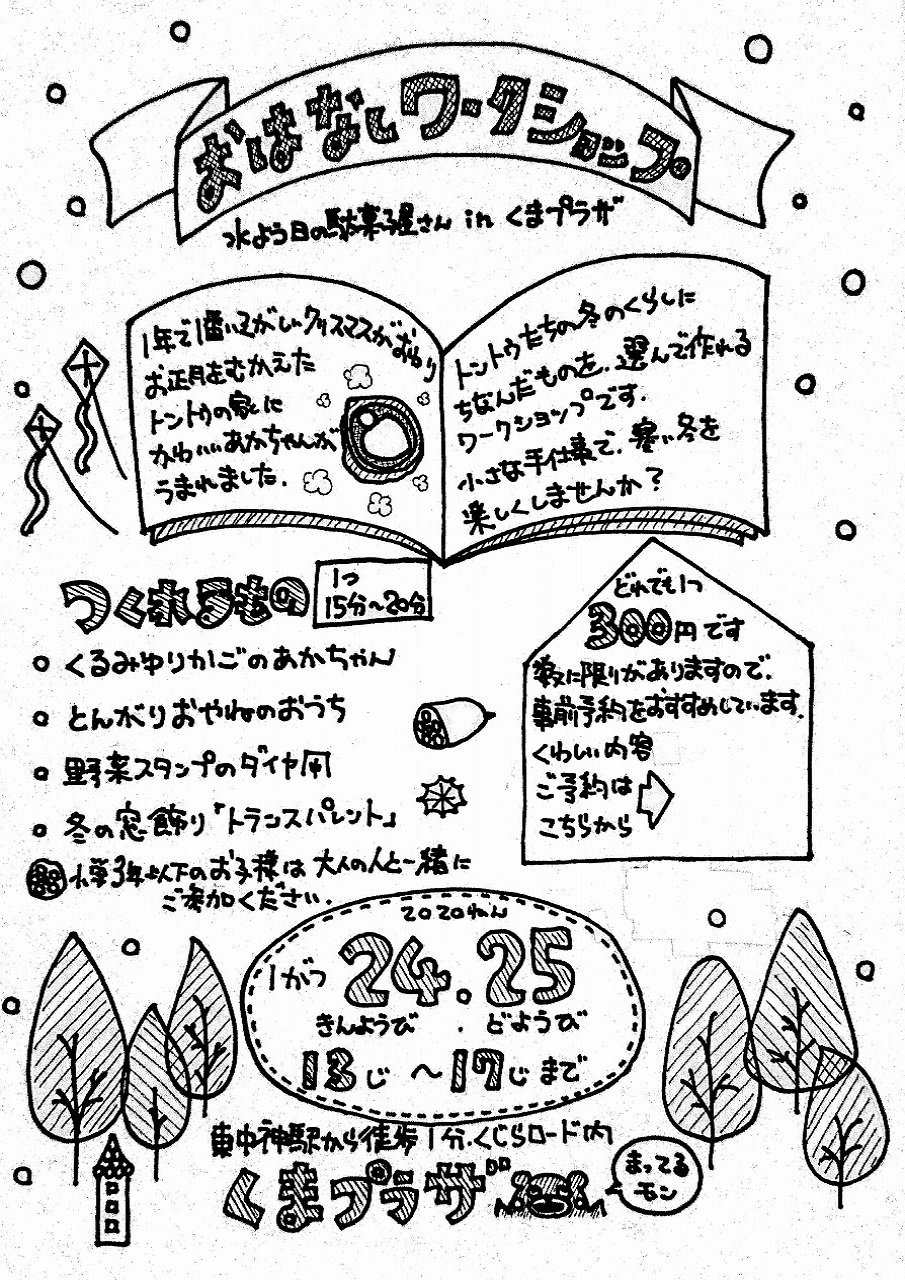 おはなしワークショップ
水よう日の駄菓子屋さん in くまプラザ
1年で1番いそがしいクリスマスがおわり
お正月をむかえた
トントゥの家に
かわいいあかちゃんが
うまれました.
トントゥたちの冬のくらしに
ちなんだものを、選んで作れる
ワークショップです.
小さな手仕事で、寒い冬を
楽しくしませんか?
つくれるもの
1つ
15分〜20分
くるみゆりかごのあかちゃん
とんがりおやねのおうち
野菜スタンプのダイヤ凧
冬の窓飾り「トランスパレント」
小学3年以下のお子様は大人の人と一緒に
ご参加ください.
どれでも1つ
300円です
数に限りがありますので、
事前予約をおすすめしています.
くわしい内容
ご予約は
こちらから
2020ねん
1がつ 24.25
きんようび . どようび
13じ 〜17じまで
東中神駅から徒歩1分.くじらロード内
くまプラザ
まってる
モン